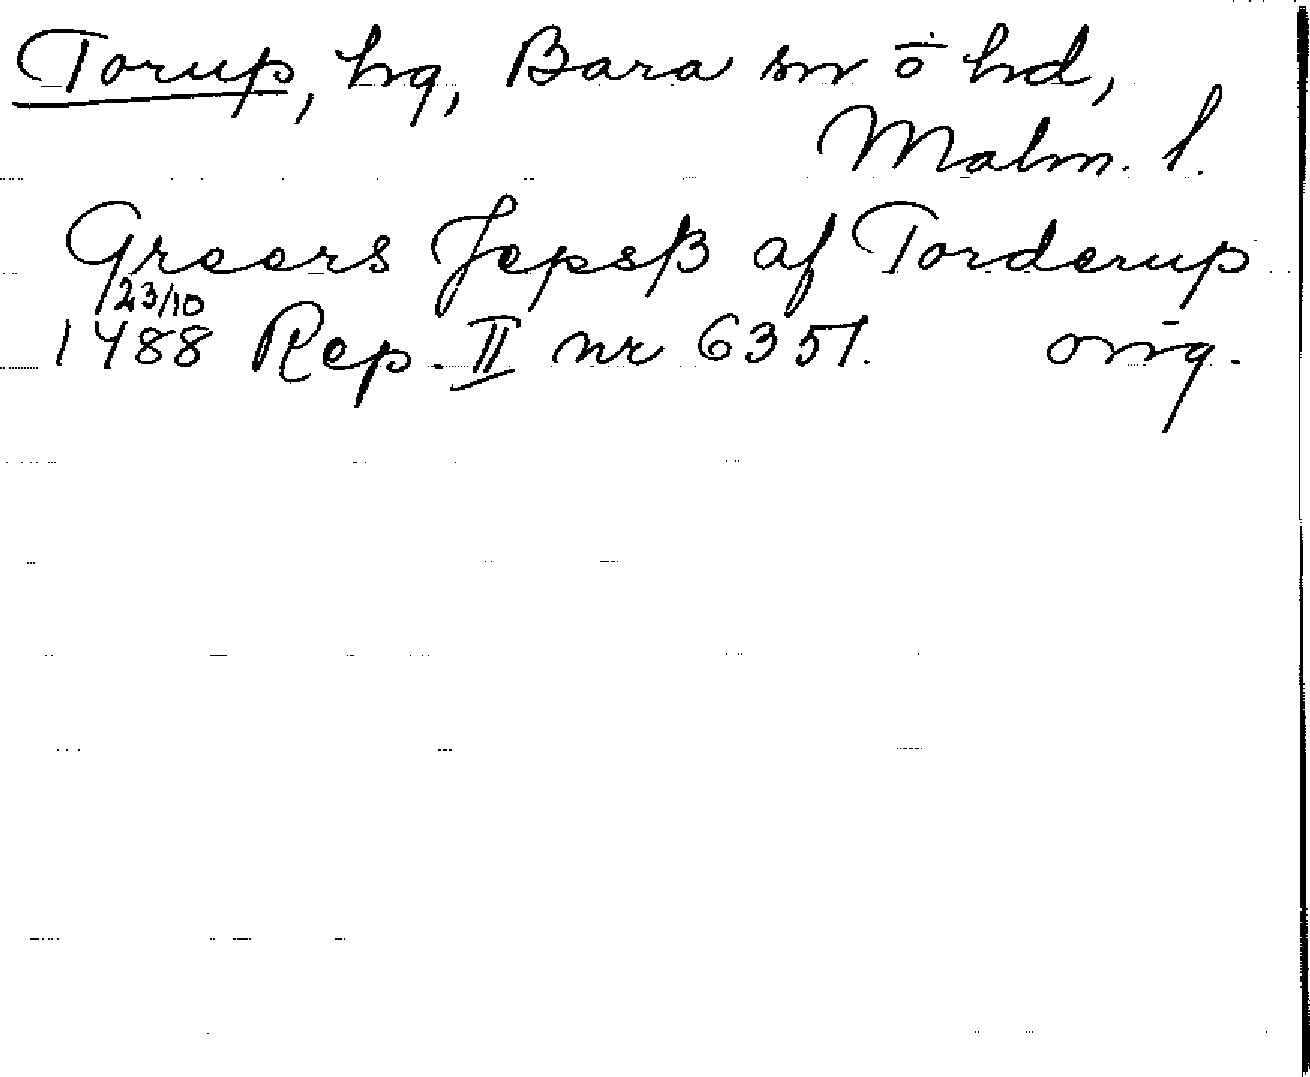 Torup, hg, Bara sn o hd,
Malm. l.
Greers Jepsß af Torderup
23/10
1488 Rep. II nr 6351. orig.